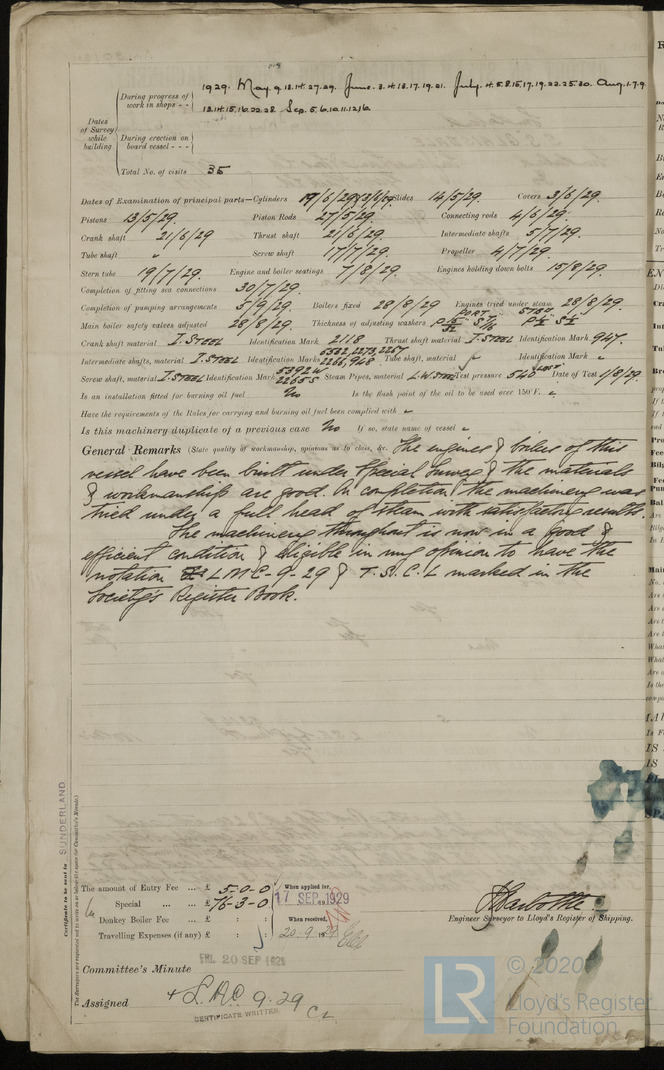 1929. May. 9. 13. 14. 27. 29. June. 3. 4. 13. 17. 19. 21. July. 4. 5. 8. 15. 17. 19. 22. 25. 30. Aug. 1. 7. 9.
During progress of work in shops - -
13. 14. 15. 16. 22. 28. Sep. 5. 6. 10. 11. 12. 16.
Dates of Survey while building
During erection on board vessel - - -
Total No. of visits 35
Dates of Examination of principal parts—Cylinders 19/6/29 Slides 14/5/29. Covers 3/6/29.
Pistons 13/5/29. Piston Rods 27/5/29. Connecting rods 4/6/29.
Crank shaft 21/6/29 Thrust shaft 21/6/29. Intermediate shafts 5/7/29.
Tube shaft " Screw shaft 17/7/29. Propeller 4/7/29.
Stern tube 19/7/29. Engine and boiler seatings 7/8/29. Engines holding down bolts 15/8/29.
Completion of fitting sea connections 30/7/29.
Completion of pumping arrangements 5/9/29. Boilers fixed 28/8/29 Engines tried under steam 28/8/29.
Main boiler safety valves adjusted 28/8/29. Thickness of adjusting washers PORT STBD
Crank shaft material I. STEEL Identification Mark 2118 Thrust shaft material I. STEEL Identification Mark 947.
Intermediate shafts, material I. STEEL Identification Marks 2266, 948 Tube shaft, material Identification Mark
Screw shaft, material I. STEEL Identification Mark Steam Pipes, material L.W. STEEL Test pressure 540 Date of Test 1/8/29.
Is an installation fitted for burning oil fuel No Is the flash point of the oil to be used over 150°F. "
Have the requirements of the Rules for carrying and burning oil fuel been complied with "
Is this machinery duplicate of a previous case No If so, state name of vessel "
General Remarks (State quality of workmanship, opinions as to class, &c. The engines & boilers of this
vessel have been built under Special Survey & the materials
& workmanship are good. On completion the machinery was
tried under a full head of steam with satisfactory results.
The machinery throughout is now in a good &
efficient condition & eligible in my opinion to have the
notation LMC-9-29 & T.S.C.L marked in the
Society's Register Book.
Certificate to be sent to SUNDERLAND
The Surveyors are requested not to write on or below the space for Committee's Minute.
The amount of Entry Fee ... £ 5-0-0 When applied for,
Special ... ... £ 76-3-0 17 SEP 1929
Donkey Boiler Fee ... £ : : When received,
Travelling Expenses (if any) £ : : 20.9.29
Engineer Surveyor to Lloyd's Register of Shipping.
FRI. 20 SEP 1929
Committee's Minute
Assigned + LMC 9.29 CL
CERTIFICATE WRITTEN
LR © 2020 Lloyd's Register Foundation